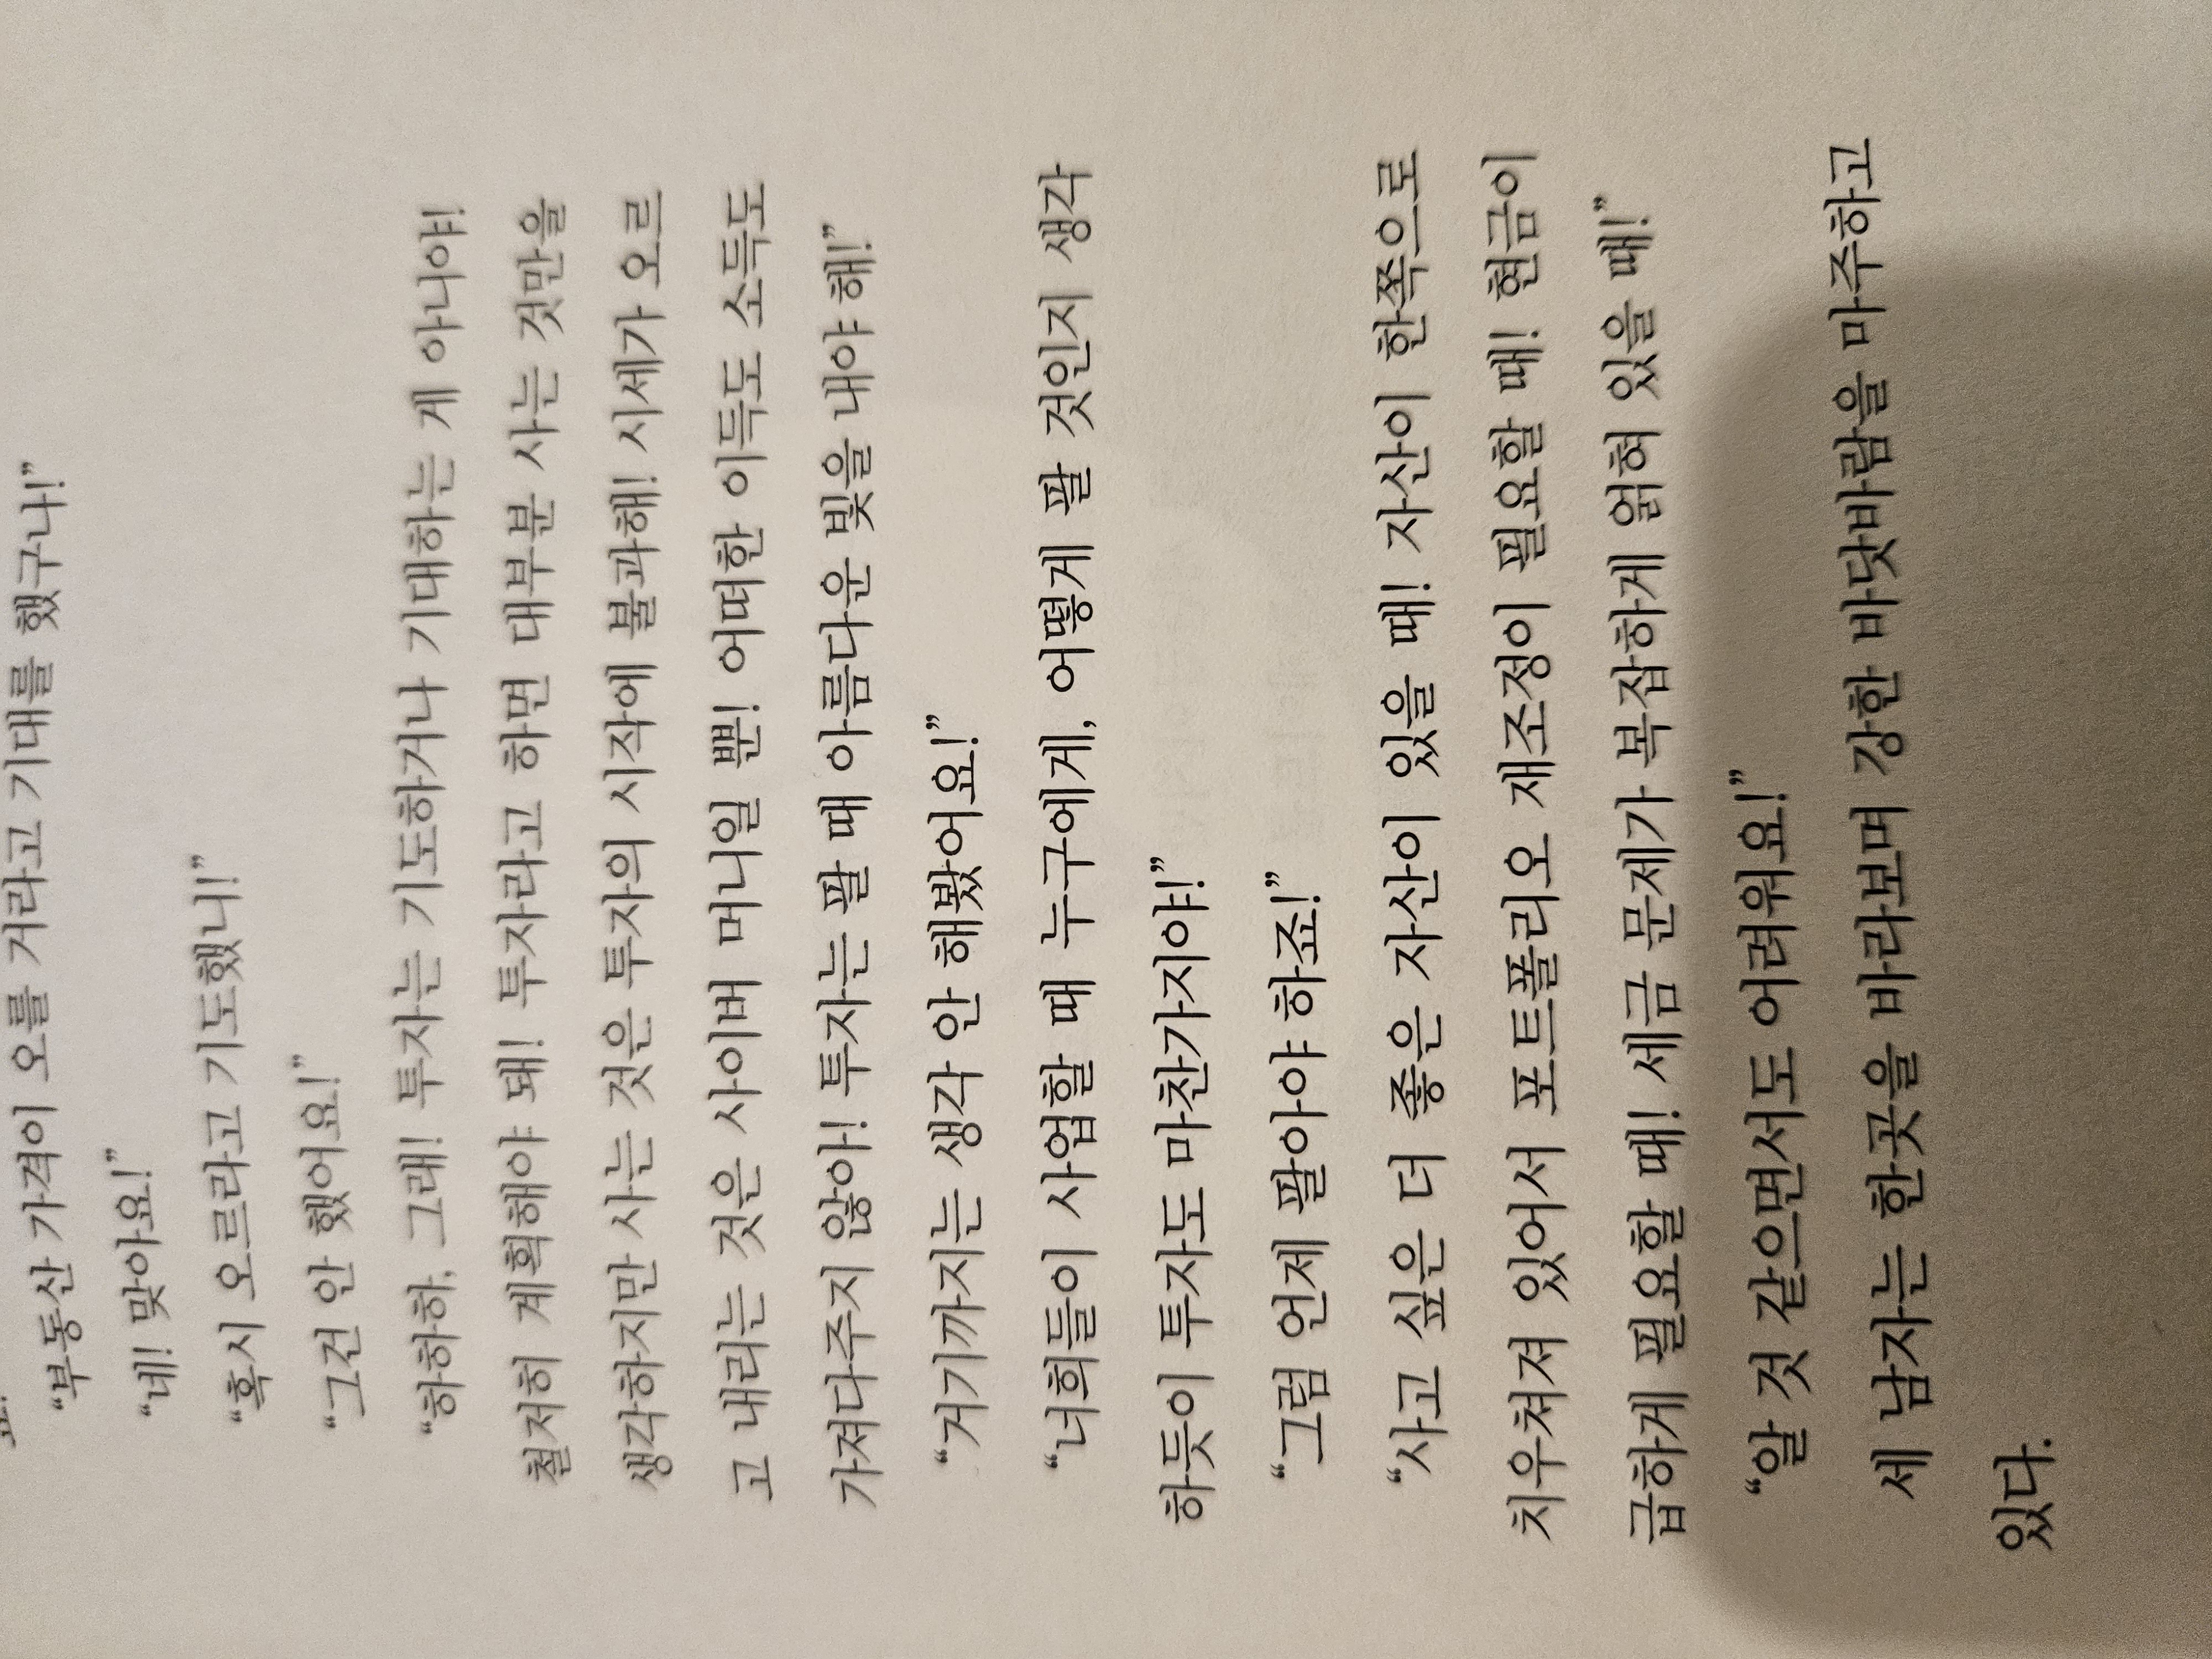 “부동산 가격이 오를 거라고 기대를 했구나!”
“네! 맞아요!”
“혹시 오르라고 기도했니!”
“그건 안 했어요!”
“하하하, 그래! 투자는 기도하거나 기대하는 게 아니야!
철저히 계획해야 돼! 투자라고 하면 대부분 사는 것만을
생각하지만 사는 것은 투자의 시작에 불과해! 시세가 오르
고 내리는 것은 사이버 머니일 뿐! 어떠한 이득도 소득도
가져다주지 않아! 투자는 팔 때 아름다운 빛을 내야 해!”
“거기까지는 생각 안 해봤어요!”
“너희들이 사업할 때 누구에게, 어떻게 팔 것인지 생각
하듯이 투자도 마찬가지야!”
“그럼 언제 팔아야 하죠!”
“사고 싶은 더 좋은 자산이 있을 때! 자산이 한쪽으로
치우쳐져 있어서 포트폴리오 재조정이 필요할 때! 현금이
급하게 필요할 때! 세금 문제가 복잡하게 얽혀 있을 때!”
“알 것 같으면서도 어려워요!”
세 남자는 한곳을 바라보며 강한 바닷바람을 마주하고
있다.